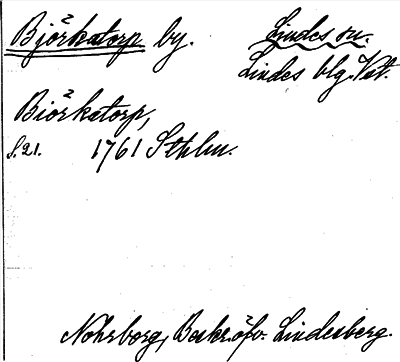 Björkatorp by.
Lindes sn.
Lindes blg. Vst.
Biörkatorp,
S. 21. 1761 Sthlm.
Nohrborg, Beskr. öfv. Lindesberg.